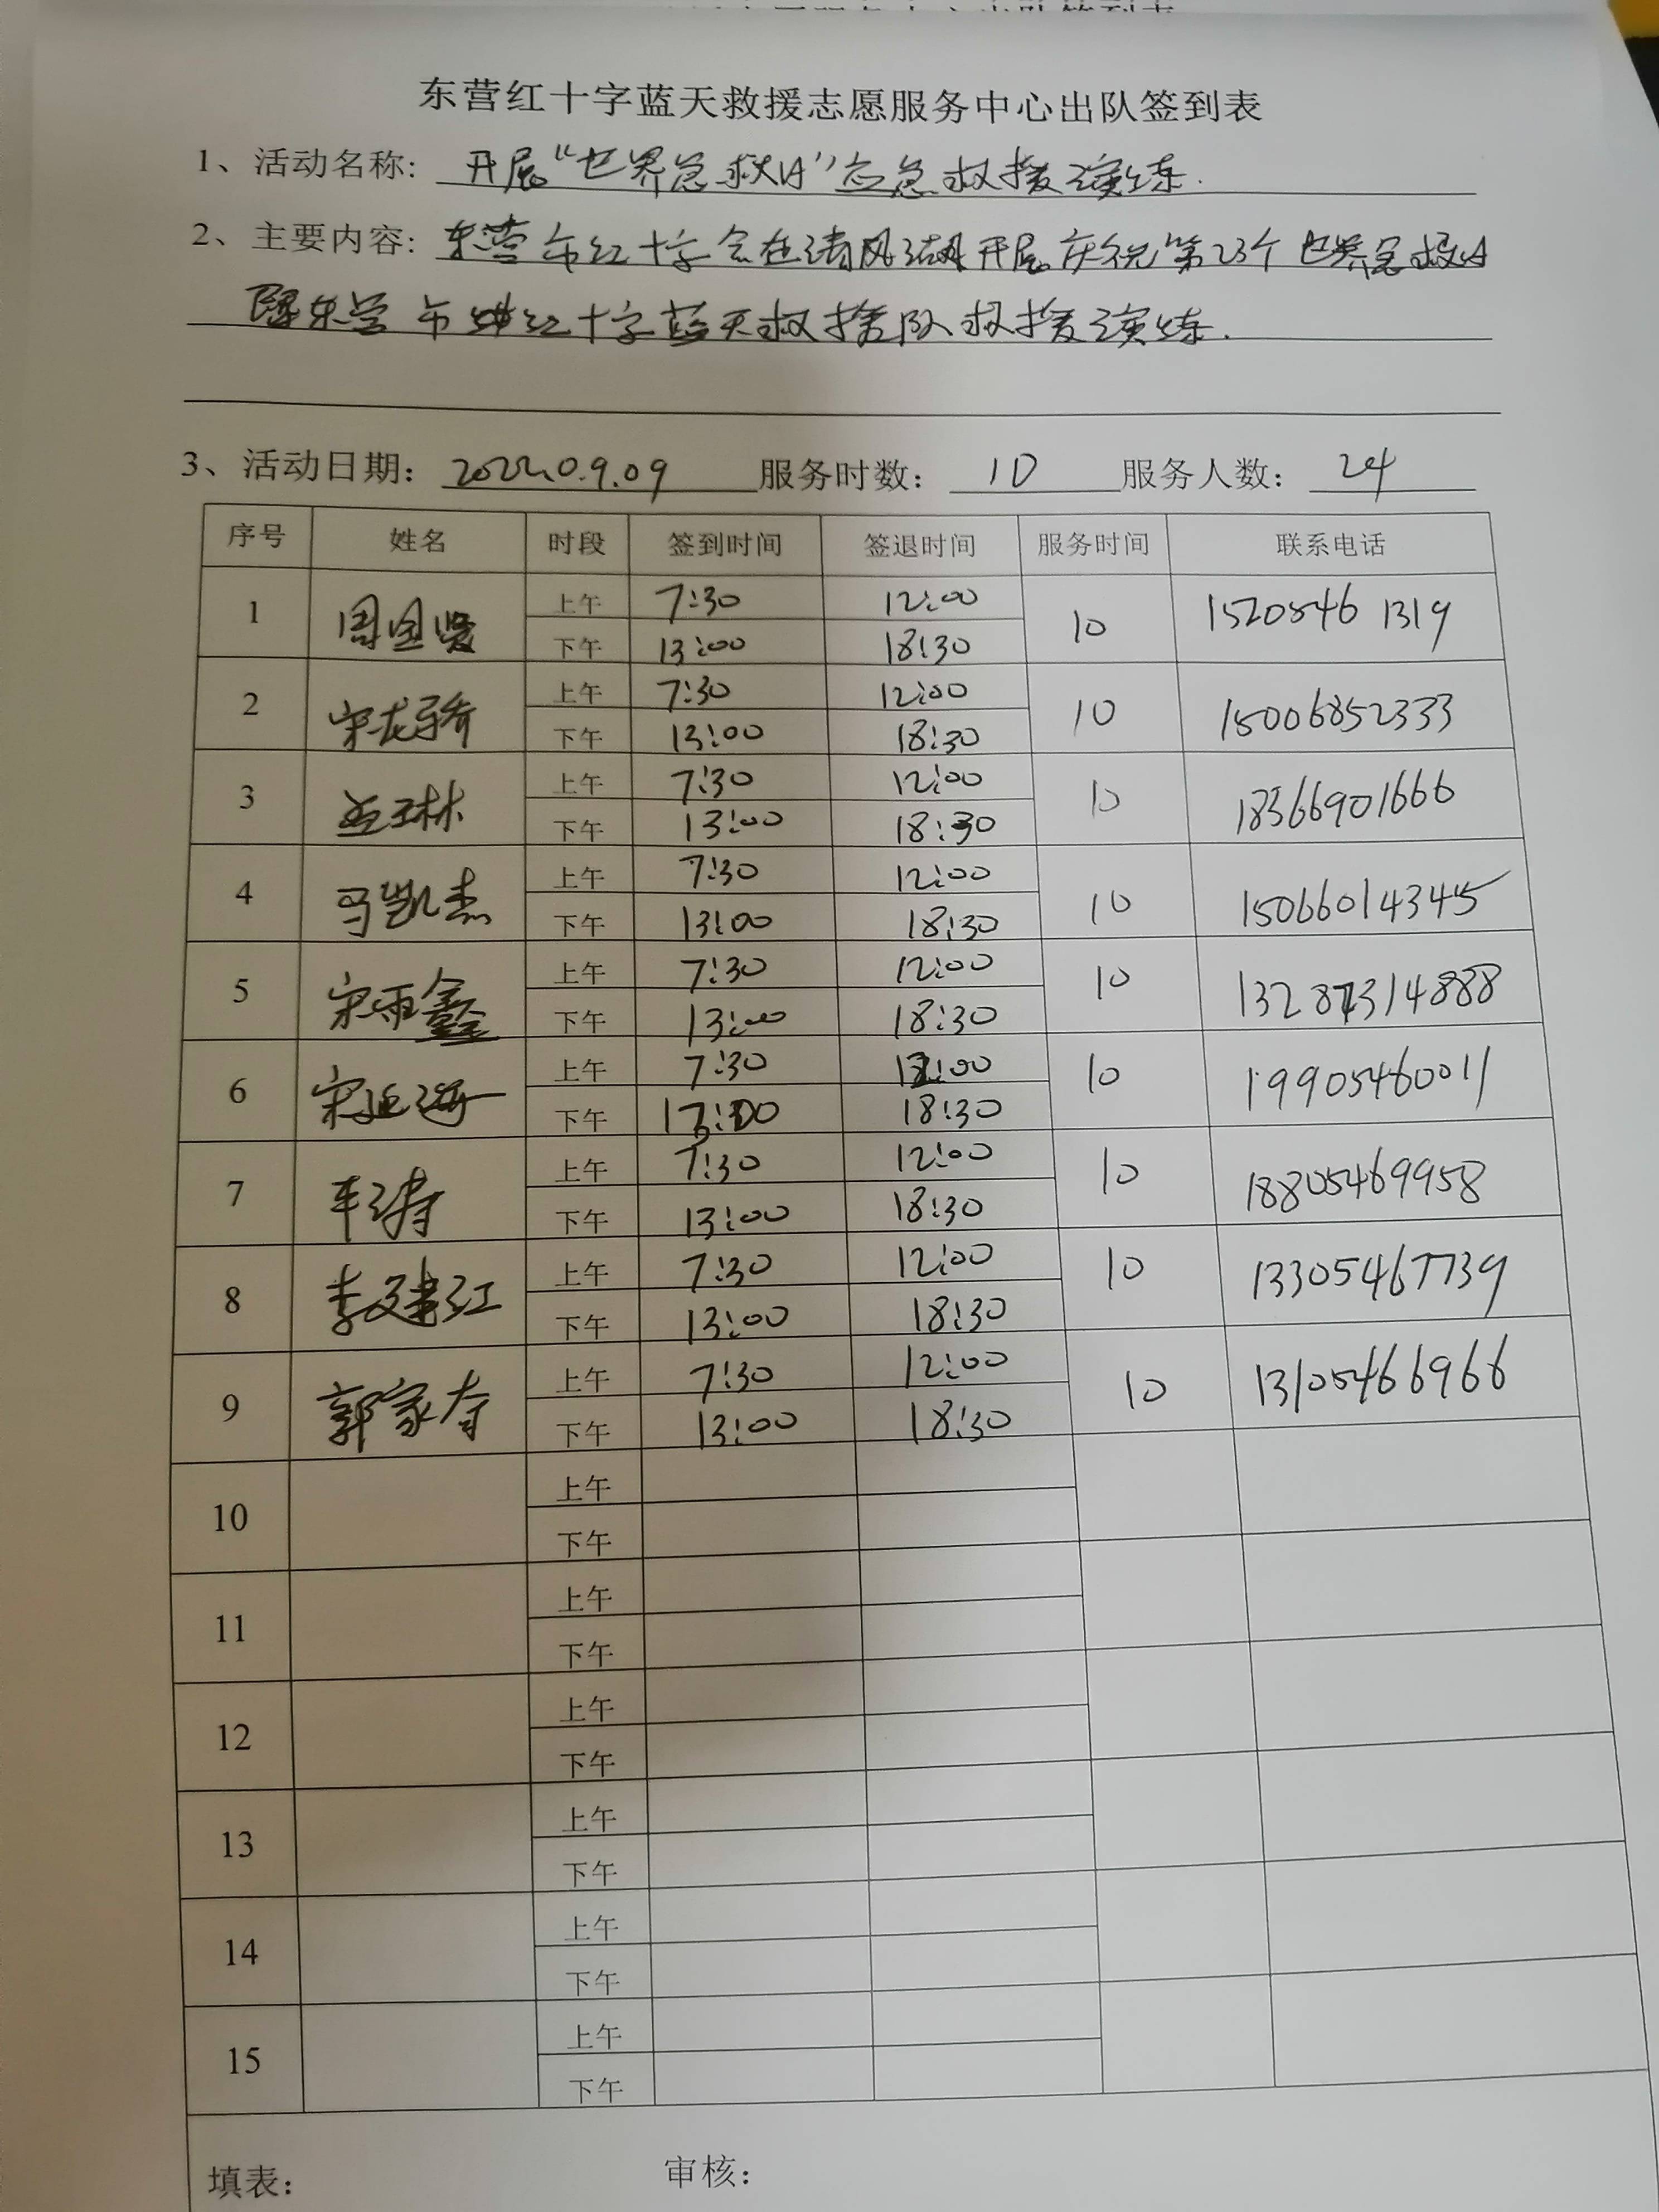 东营红十字蓝天救援志愿服务中心出队签到表
1、活动名称: 开展“世界急救日”应急救援演练.
2、主要内容: 东营市红十字会在清风湖开展庆祝第23个世界急救日
暨东营市红十字蓝天救援队救援演练.
3、活动日期: 2022.0.9.09 服务时数: 10 服务人数: 24
序号 姓名 时段 签到时间 签退时间 服务时间 联系电话
1 周国贤 上午 7:30 12:00 10 15205461319
下午 13:00 18:30
2 宋龙骄 上午 7:30 12:00 10 15006852333
下午 13:00 18:30
3 孟林 上午 7:30 12:00 10 18366901666
下午 13:00 18:30
4 马凯杰 上午 7:30 12:00 10 15066014345
下午 13:00 18:30
5 宋雨鑫 上午 7:30 12:00 10 13287314888
下午 13:00 18:30
6 宋延海 上午 7:30 12:00 10 19905460011
下午 13:00 18:30
7 涛 上午 7:30 12:00 10 18805469958
下午 13:00 18:30
8 李建江 上午 7:30 12:00 10 13305467739
下午 13:00 18:30
9 郭家存 上午 7:30 12:00 10 13105466966
下午 13:00 18:30
10 上午
下午
11 上午
下午
12 上午
下午
13 上午
下午
14 上午
下午
15 上午
下午
填表: 审核: